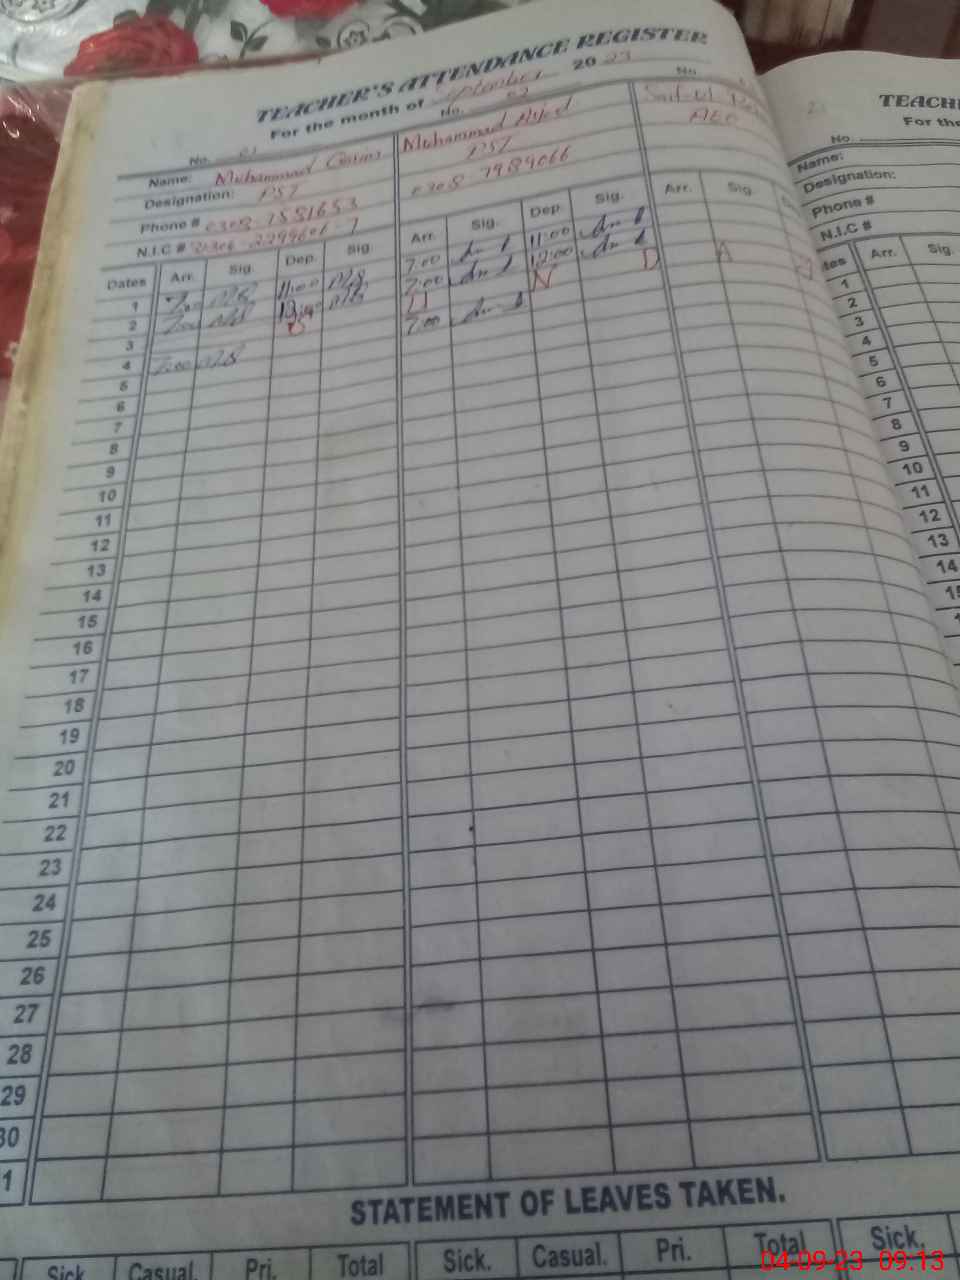 TEACHER'S ATTENDANCE REGISTER
For the month of September 2023
No. 01
Name: Muhammad
Designation: PST
Phone # 0308-7581653
N.I.C #
No. 02
Muhammad
PST
0308-7989066
No.
Saif ul
AEO
Dates Arr. Sig. Dep. Sig. Arr. Sig. Dep. Sig. Arr. Sig.
1 7:00 11:00 7:00 11:00
2 7:00 12:00 7:00 12:00
3 S U N D A Y
4 7:00 7:00
5
6
7
8
9
10
11
12
13
14
15
16
17
18
19
20
21
22
23
24
25
26
27
28
29
30
1
STATEMENT OF LEAVES TAKEN.
Sick. Casual. Pri. Total Sick. Casual. Pri. Total Sick.
21
TEACH
For the
No.
Name:
Designation:
Phone #
N.I.C #
tes Arr. Sig.
1
2
3
4
5
6
7
8
9
10
11
12
13
14
04-09-23 09:13